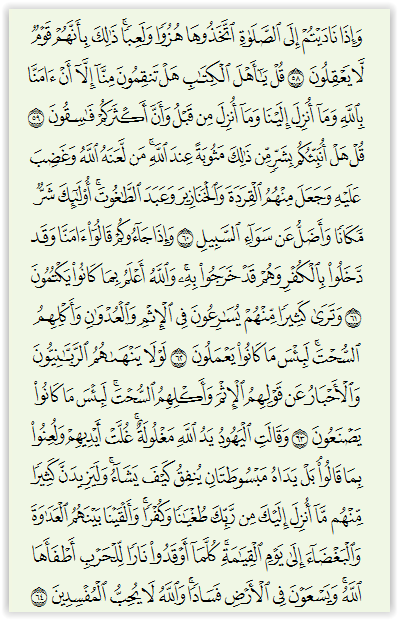 وَإِذَا نَادَيْتُمْ إِلَى ٱلصَّلَوٰةِ ٱتَّخَذُوهَا هُزُوًا وَلَعِبًا ۚ ذَٰلِكَ بِأَنَّهُمْ قَوْمٌ
لَّا يَعْقِلُونَ ٥٨ قُلْ يَٰٓأَهْلَ ٱلْكِتَٰبِ هَلْ تَنقِمُونَ مِنَّآ إِلَّآ أَنْ ءَامَنَّا
بِٱللَّهِ وَمَآ أُنزِلَ إِلَيْنَا وَمَآ أُنزِلَ مِن قَبْلُ وَأَنَّ أَكْثَرَكُمْ فَٰسِقُونَ ٥٩
قُلْ هَلْ أُنَبِّئُكُم بِشَرٍّ مِّن ذَٰلِكَ مَثُوبَةً عِندَ ٱللَّهِ ۚ مَن لَّعَنَهُ ٱللَّهُ وَغَضِبَ
عَلَيْهِ وَجَعَلَ مِنْهُمُ ٱلْقِرَدَةَ وَٱلْخَنَازِيرَ وَعَبَدَ ٱلطَّٰغُوتَ ۚ أُو۟لَٰٓئِكَ شَرٌّ
مَّكَانًا وَأَضَلُّ عَن سَوَآءِ ٱلسَّبِيلِ ٦٠ وَإِذَا جَآءُوكُمْ قَالُوٓا۟ ءَامَنَّا وَقَد
دَّخَلُوا۟ بِٱلْكُفْرِ وَهُمْ قَدْ خَرَجُوا۟ بِهِۦ ۚ وَٱللَّهُ أَعْلَمُ بِمَا كَانُوا۟ يَكْتُمُونَ
٦١ وَتَرَىٰ كَثِيرًا مِّنْهُمْ يُسَٰرِعُونَ فِى ٱلْإِثْمِ وَٱلْعُدْوَٰنِ وَأَكْلِهِمُ
ٱلسُّحْتَ ۚ لَبِئْسَ مَا كَانُوا۟ يَعْمَلُونَ ٦٢ لَوْلَا يَنْهَىٰهُمُ ٱلرَّبَّٰنِيُّونَ
وَٱلْأَحْبَارُ عَن قَوْلِهِمُ ٱلْإِثْمَ وَأَكْلِهِمُ ٱلسُّحْتَ ۚ لَبِئْسَ مَا كَانُوا۟
يَصْنَعُونَ ٦٣ وَقَالَتِ ٱلْيَهُودُ يَدُ ٱللَّهِ مَغْلُولَةٌ ۚ غُلَّتْ أَيْدِيهِمْ وَلُعِنُوا۟
بِمَا قَالُوا۟ ۘ بَلْ يَدَاهُ مَبْسُوطَتَانِ يُنفِقُ كَيْفَ يَشَآءُ ۚ وَلَيَزِيدَنَّ كَثِيرًا
مِّنْهُم مَّآ أُنزِلَ إِلَيْكَ مِن رَّبِّكَ طُغْيَٰنًا وَكُفْرًا ۚ وَأَلْقَيْنَا بَيْنَهُمُ ٱلْعَدَٰوَةَ
وَٱلْبَغْضَآءَ إِلَىٰ يَوْمِ ٱلْقِيَٰمَةِ ۚ كُلَّمَآ أَوْقَدُوا۟ نَارًا لِّلْحَرْبِ أَطْفَأَهَا
ٱللَّهُ ۚ وَيَسْعَوْنَ فِى ٱلْأَرْضِ فَسَادًا ۚ وَٱللَّهُ لَا يُحِبُّ ٱلْمُفْسِدِينَ ٦٤